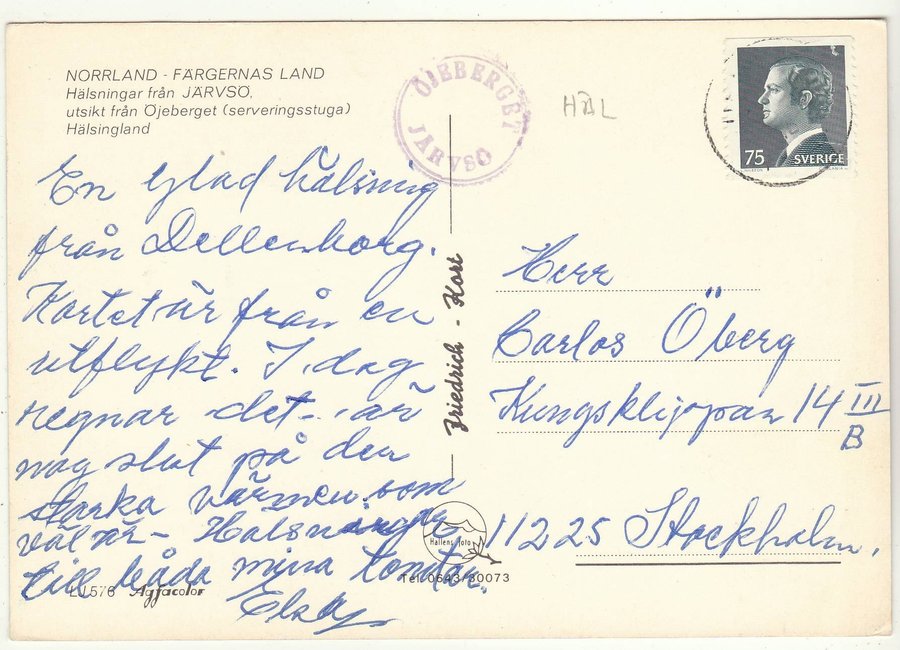 NORRLAND - FÄRGERNAS LAND
Hälsningar från JÄRVSÖ,
utsikt från Öjeberget (serveringsstuga)
Hälsingland
ÖJEBERGET
JÄRVSÖ
HBL
75 SVERIGE
En glad hälsning
från Dellenborg.
Kortet är från en
utflykt. I dag
regnar det - är
nog slut på den
starka värmen som
väl är -
till båda mina
Friedrich - Kort
Herr
Carlos Öberg
Kungsklippan 14 III
B
11225 Stockholm.
Hallens foto
Tel 0643/30073
LJ 576 Agfacolor